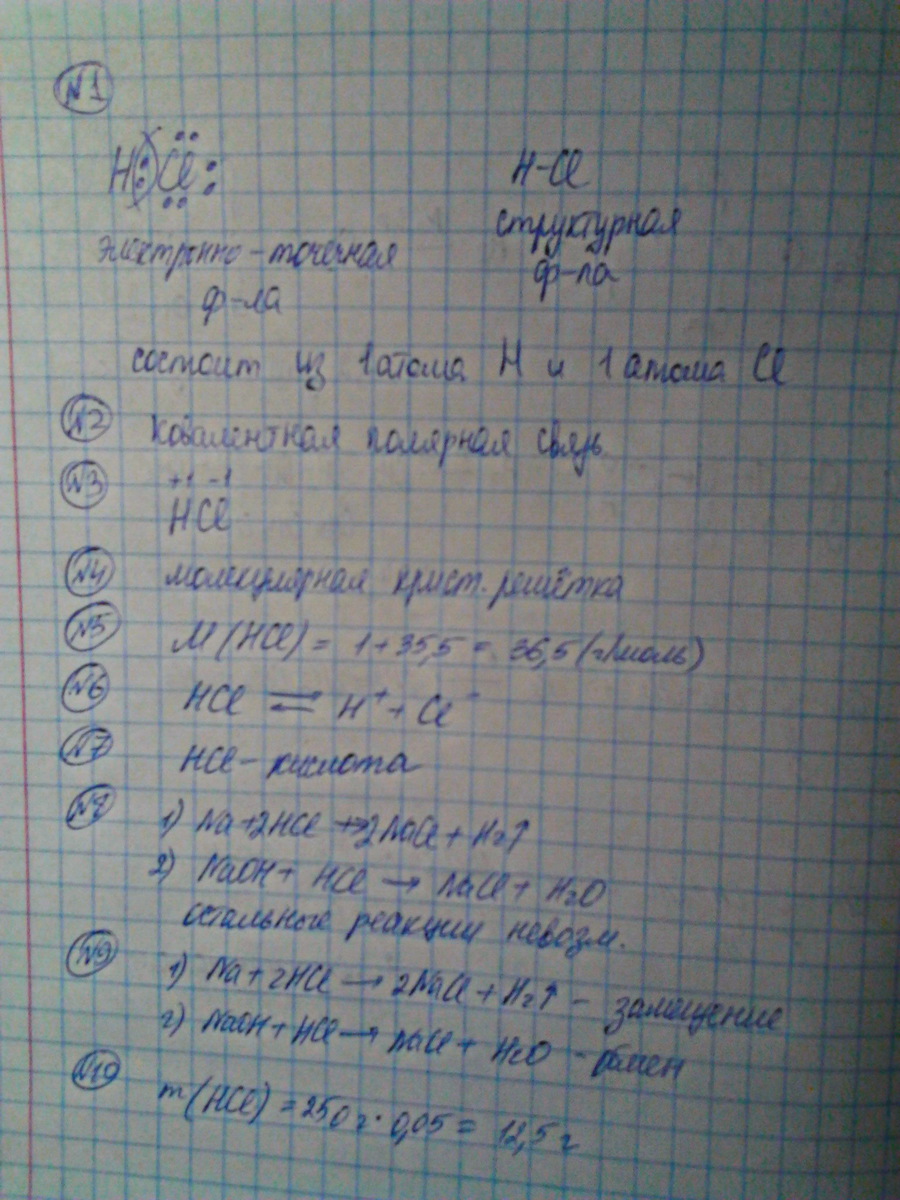 №1
H:Cl:
H-Cl
электронно-точечная
ф-ла
структурная
ф-ла
состоит из 1 атома H и 1 атома Cl
№2 ковалентная полярная связь
№3 +1 -1
HCl
№4 молекулярная крист. решётка
№5 M(HCl) = 1+35,5 = 36,5 (г/моль)
№6 HCl ⇌ H⁺ + Cl⁻
№7 HCl - кислота
№8 1) Na+2HCl → 2NaCl + H₂↑
2) NaOH + HCl → NaCl + H₂O
остальные реакции невозм.
№9 1) Na + 2HCl → 2NaCl + H₂↑ - замещение
2) NaOH + HCl → NaCl + H₂O - обмен
№10 m(HCl) = 250 г · 0,05 = 12,5 г